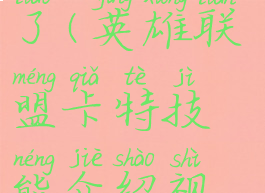 了(英雄联
méng qiǎ tè jì
盟卡特技
néng jiè shào shì
能介绍视